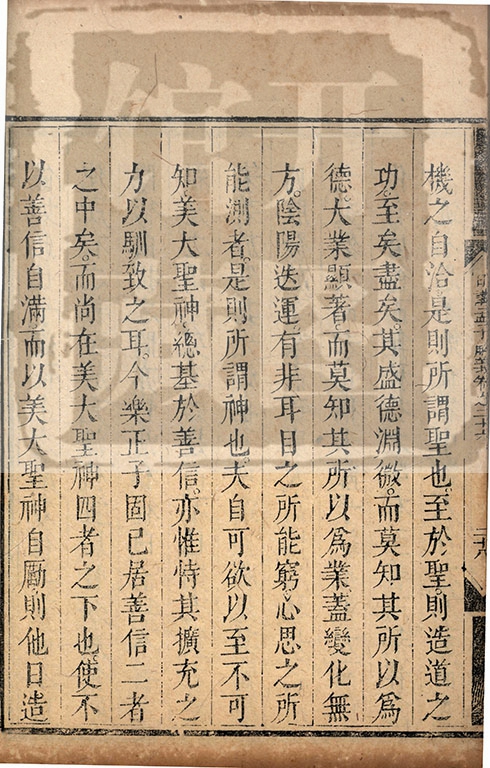 機之自洽。是則所謂聖也。至於聖。則造道之
功。至矣盡矣。其盛德淵微。而莫知其所以為
德。大業顯著。而莫知其所以為業。蓋變化無
方。陰陽迭運。有非耳目之所能窮。心思之所
能測者。是則所謂神也。夫自可欲以至不可
知。美大聖神。總基於善信。亦惟恃其擴充之
力以馴致之耳。今樂正子固已居善信二者
之中矣。而尚在美大聖神四者之下也。使不
以善信自滿而以美大聖神自勵則他日造